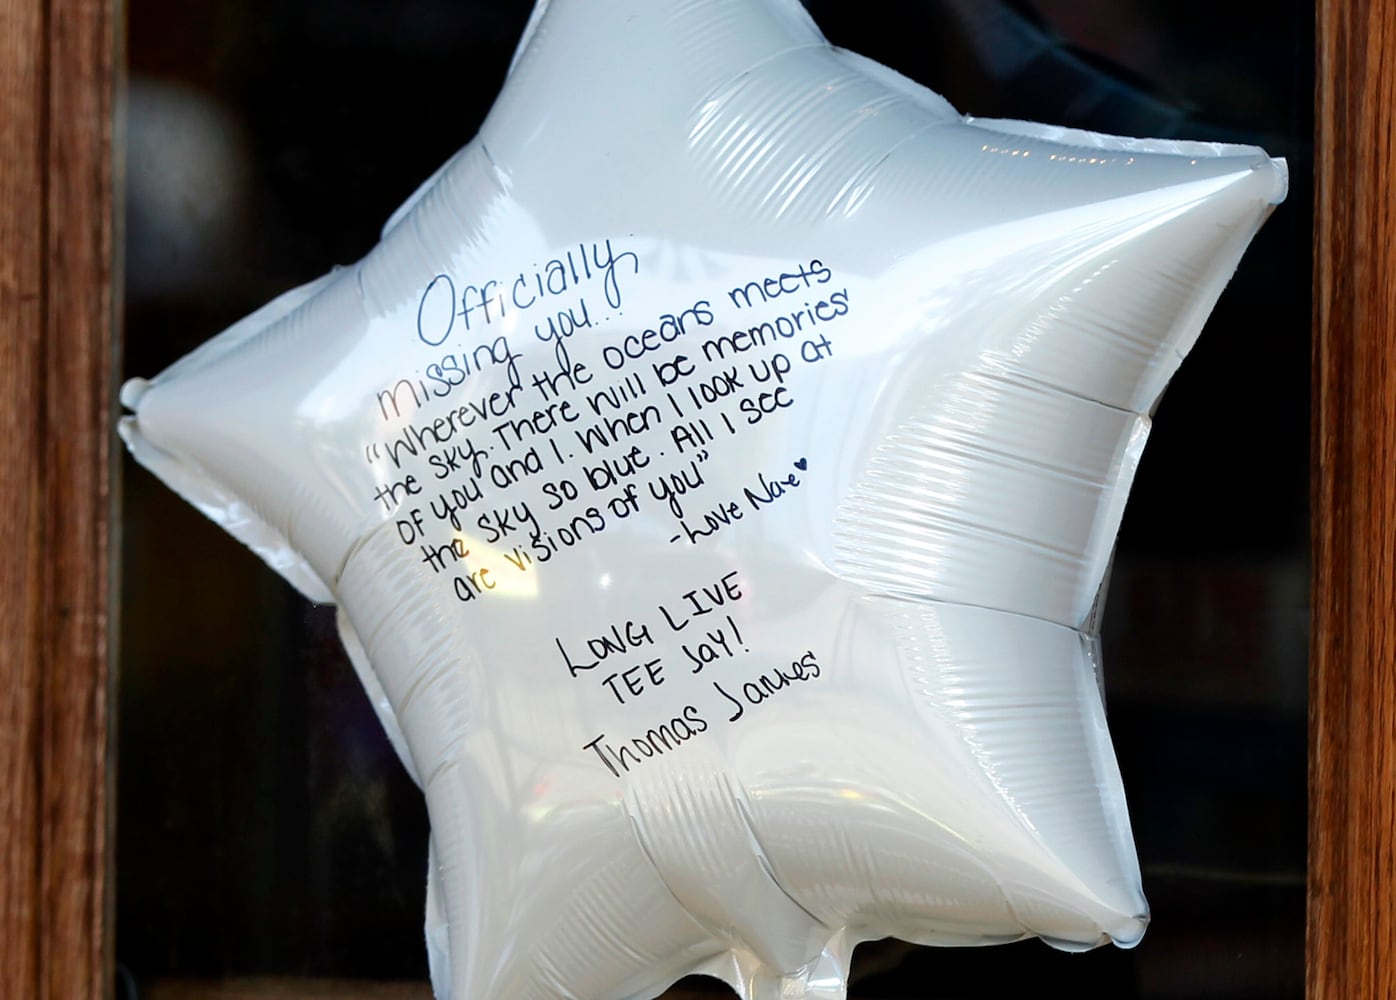 Officially
missing you...
"Wherever the oceans meets
the sky. There will be memories
of you and I. When I look up at
the sky so blue. All I see
are visions of you"
-Love Nae
LONG LIVE
TEE JaY!
Thomas James